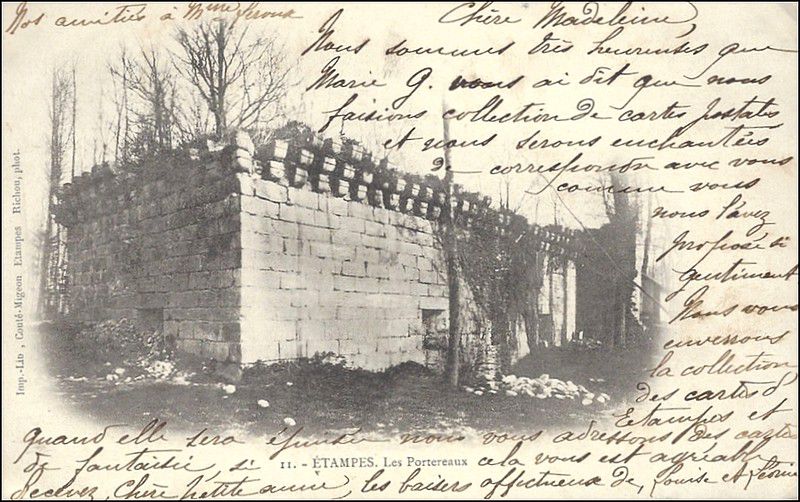 Nos amitiés à Mme Seroux
Chère Madeleine,
Nous sommes très heureuses que
Marie G. vous ai dit que nous
faisions collection de cartes postales
et nous serons enchantées
de correspondre avec vous
comme vous
nous l'avez
proposé si
gentiment
Nous vous
enverrons
la collection
des cartes d'
Etampes et
quand elle sera épuisée nous vous adresserons des cartes
de fantaisie, si cela vous est agréable
11. - ÉTAMPES. Les Portereaux
Recevez, Chère petite amie, les baisers affectueux de, Louise et
Imp.-Lib., Couté-Migeon Etampes Richou, phot.